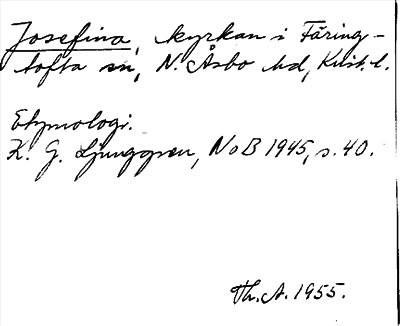 Josefina, kyrkan i Färing-
tofta sn, N. Åsbo hd, Krist. l.
Etymologi.
K. G. Ljunggren, NoB 1945, s. 40.
Th. A. 1955.